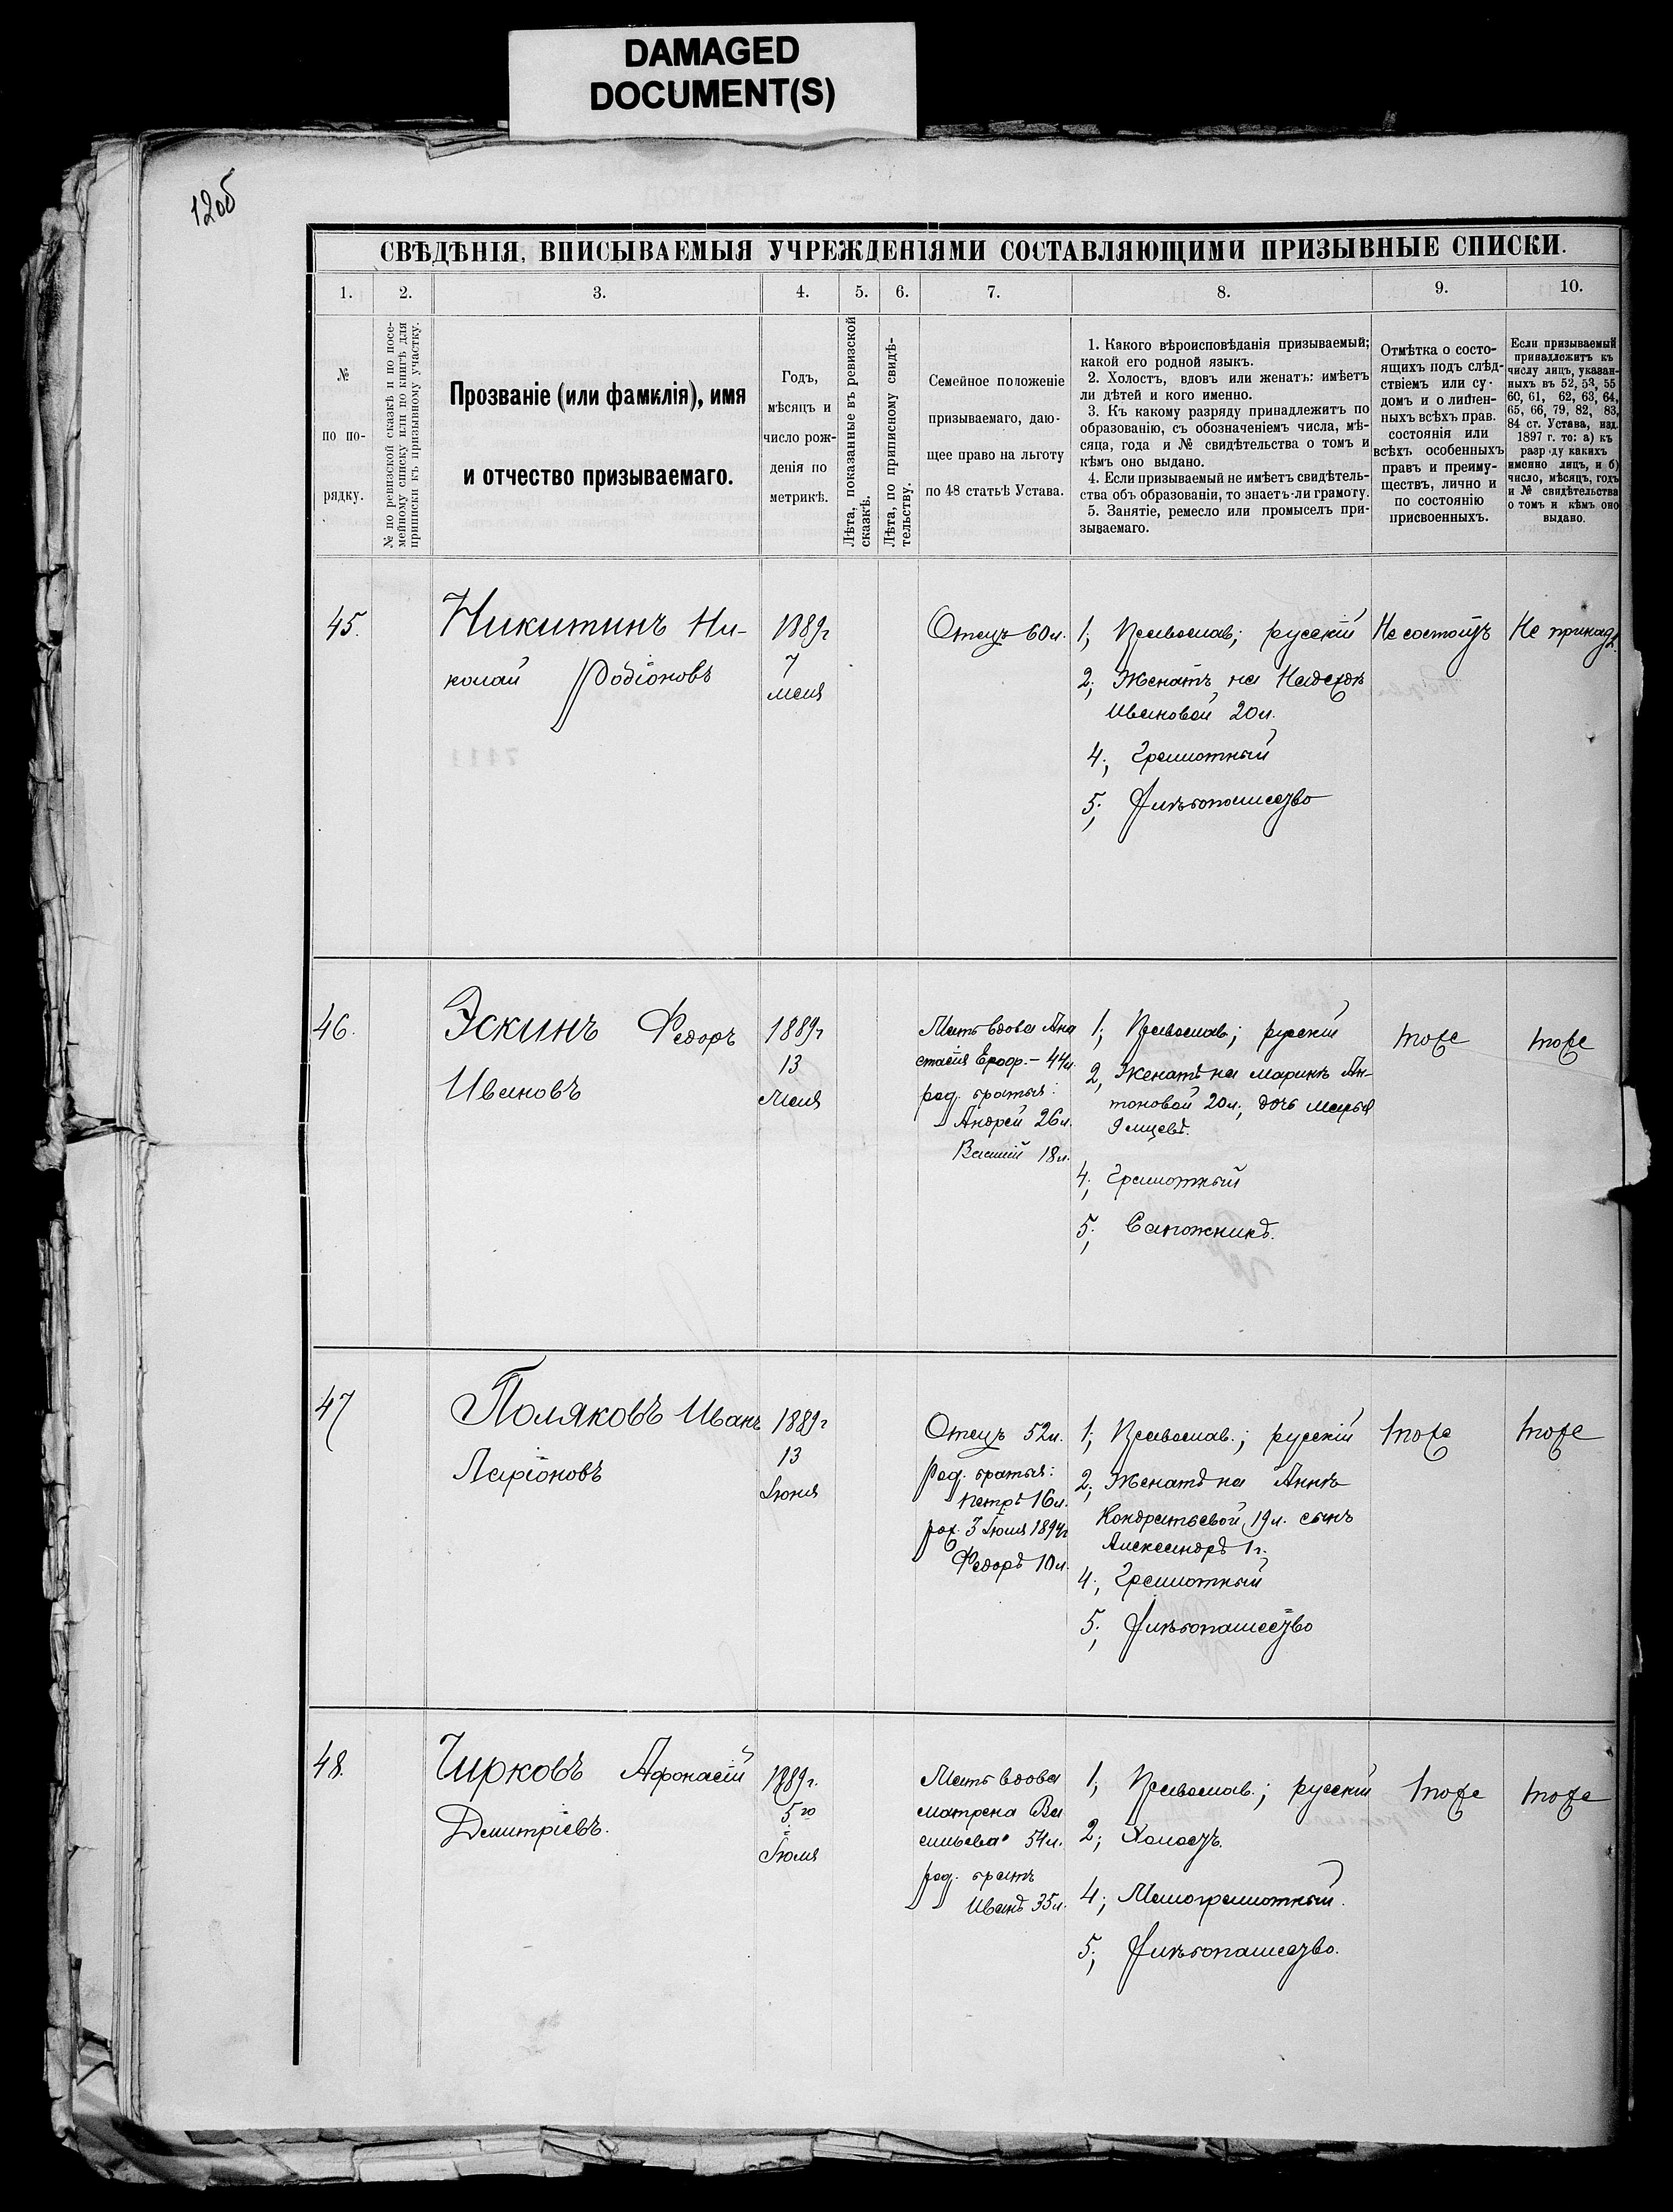 DAMAGED
DOCUMENT(S)
12об
СВѢДѢНІЯ, ВПИСЫВАЕМЫЯ УЧРЕЖДЕНІЯМИ СОСТАВЛЯЮЩИМИ ПРИЗЫВНЫЕ СПИСКИ.
1. 2. 3. 4. 5. 6. 7. 8. 9. 10.
№
по по-
рядку.
№ по ревизской сказкѣ и по посе-
мейному списку или по книгѣ для
приписки къ призывному участку.
Прозваніе (или фамилія), имя
и отчество призываемаго.
Годъ,
мѣсяцъ и
число рож-
денія по
метрикѣ.
Лѣта, показанные въ ревизской
сказкѣ.
Лѣта, по приписному свидѣ-
тельству.
Семейное положеніе
призываемаго, даю-
щее право на льготу
по 48 статьѣ Устава.
1. Какого вѣроисповѣданія призываемый;
какой его родной языкъ.
2. Холостъ, вдовъ или женатъ: имѣетъ
ли дѣтей и кого именно.
3. Къ какому разряду принадлежитъ по
образованію, съ обозначеніемъ числа, мѣ-
сяца, года и № свидѣтельства о томъ и
кѣмъ оно выдано.
4. Если призываемый не имѣетъ свидѣтель-
ства объ образованіи, то знаетъ-ли грамоту.
5. Занятіе, ремесло или промыселъ при-
зываемаго.
Отмѣтка о состо-
ящихъ подъ слѣд-
ствіемъ или су-
домъ и о лишен-
ныхъ всѣхъ прав.
состоянія или
всѣхъ особенныхъ
правъ и преиму-
ществъ, лично и
по состоянію
присвоенныхъ.
Если призываемый
принадлежитъ къ
числу лицъ, указан-
ныхъ въ 52, 53, 55
60, 61, 62, 63, 64,
65, 66, 79, 82, 83,
84 ст. Устава, изд.
1897 г. то: а) къ
разр ду какихъ
именно лицъ, и б)
число, мѣсяцъ, годъ
и № свидѣтельства
о томъ и кѣмъ оно
выдано.
45.
Никитинъ Ни-
колай Родіоновъ
1889г
7
мая
Отецъ 60л.
1; Православ; русскій
2; Женатъ на Надеждѣ
Ивановой 20л.
4; Грамотный
5; Хлѣбопашество
Не состоитъ
Не принадл.
46.
Эскинъ Федоръ
Ивановъ
1889г
13
Мая
Мать вдова Ана
стасія Ероф. – 44л.
род. братья:
Андрей 26л.
Василій 18л.
1; Православ; русскій
2, Женатъ на Маринѣ Ан-
тоновой 20л; дочь Марья
9 мѣсяцевъ.
4; Грамотный
5; Сапожникъ.
тоже
тоже
47
Поляковъ Иванъ
Ларіоновъ
1889г
13
Іюня
Отецъ 52л.
род. братья:
Петръ 16л.
рож. 3 Іюля 1894г
Федоръ 10л.
1; Православ.; русскій
2; Женатъ на Аннѣ
Кондратьевой, 19л. сынъ
Александръ 1г.
4; Грамотный
5; Хлѣбопашество
тоже
тоже
48.
Чирковъ Афонасій
Дмитріевъ.
1889г.
5го
Іюля
Мать вдова
Матрена Ва
сильева 54л.
род. братъ
Иванъ 35л.
1; Православ.; русскій
2; Холостъ.
4; Малограмотный.
5; Хлѣбопашество.
тоже
тоже